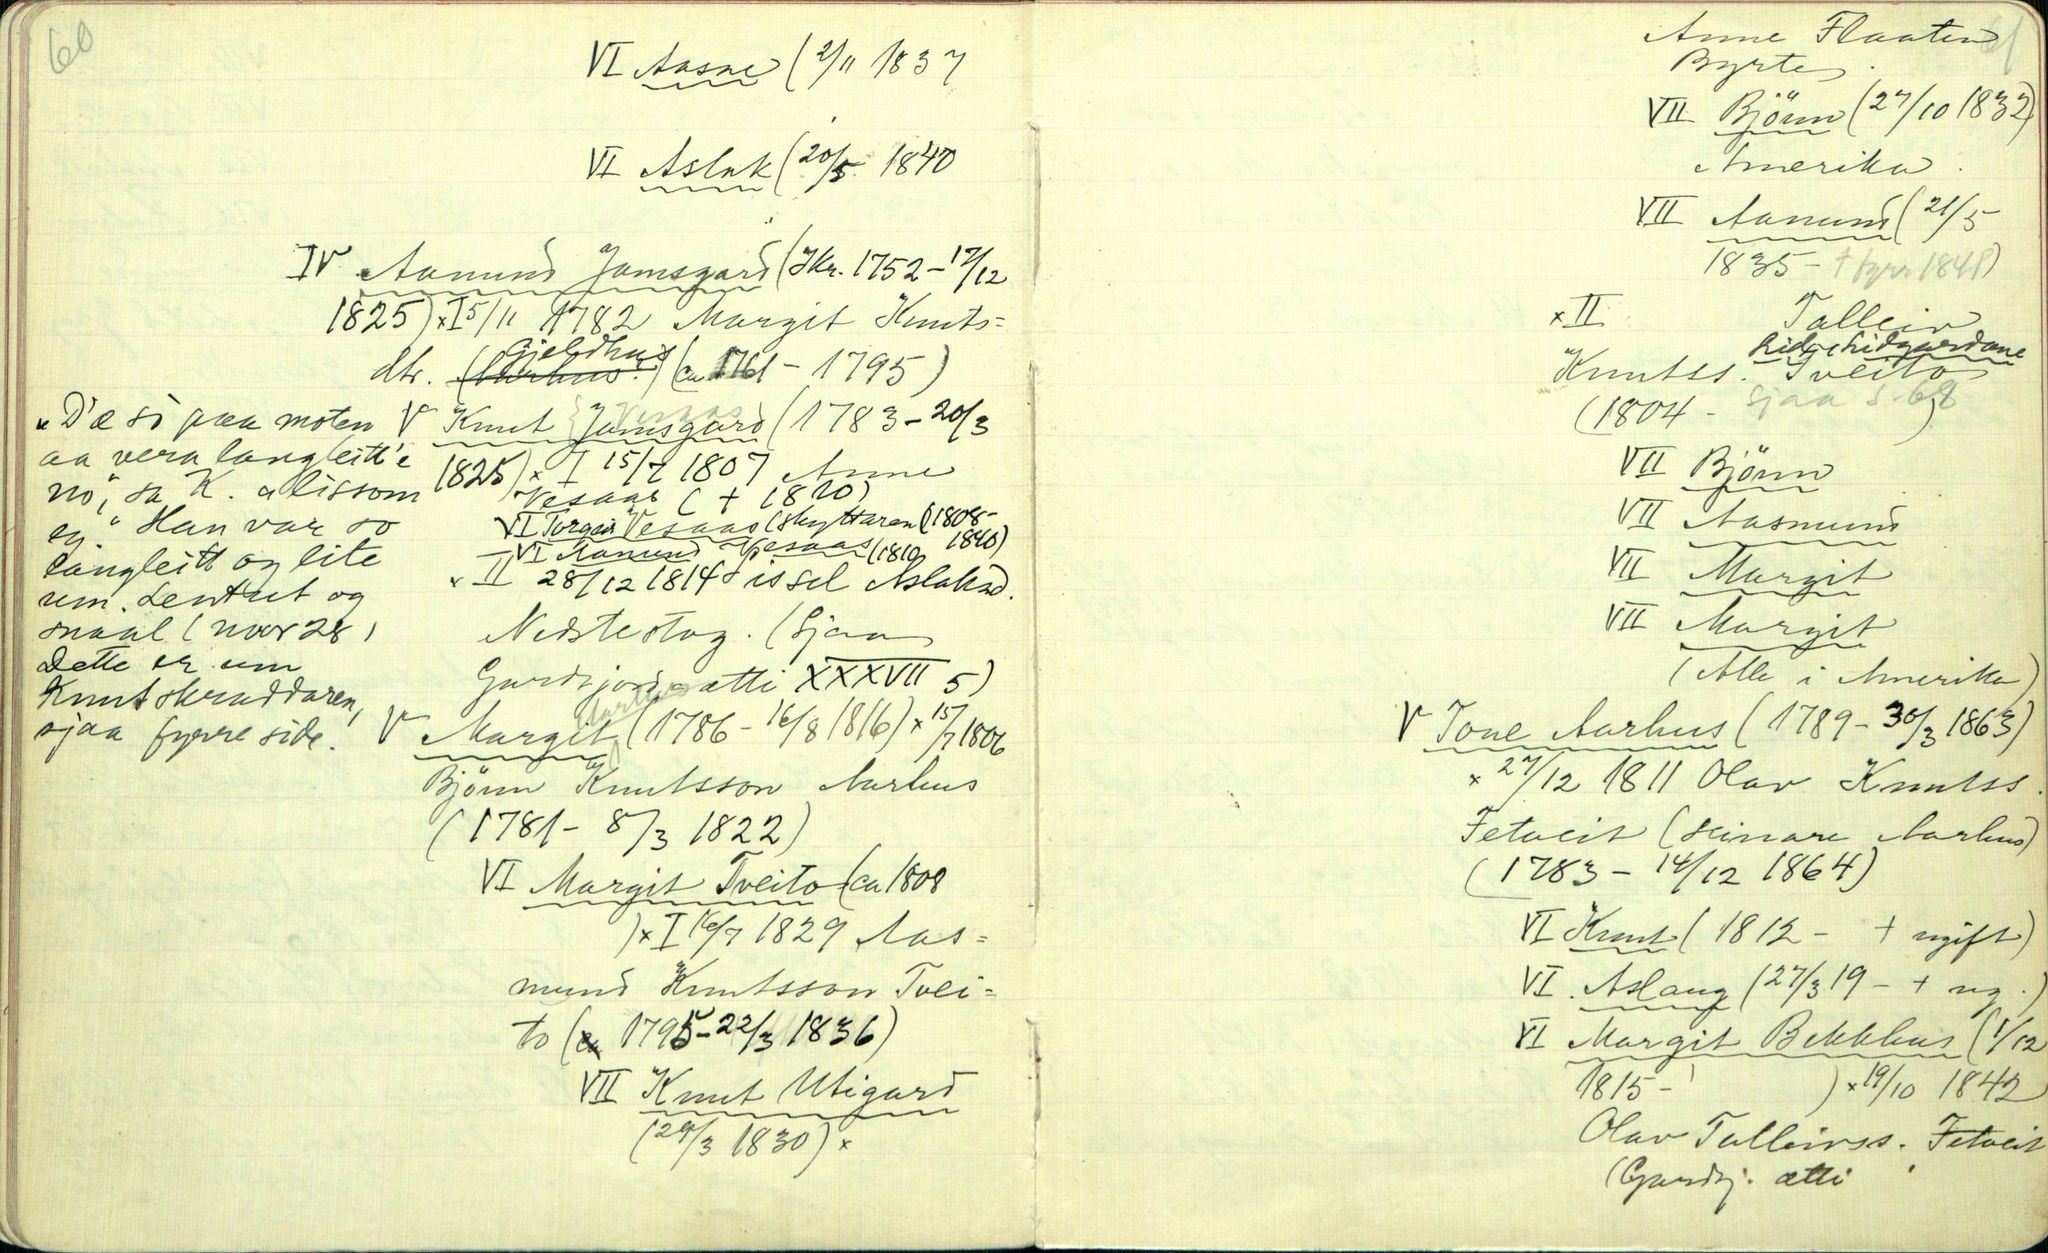 60
VI Aasne (2/11 1837
VI Aslak (20/5 1840
IV Aamund Jamsgard (Skr. 1752 – 17/12
1825) × I 5/11 1782 Margit Knuts=
Gjeldhus
dtr. (Aarhus?) (ca 1761 – 1795)
V Knut Jamsgard (1783 – 20/3
Vesaas
1825) × I 15/7 1807 Anne
Vesaas ( + 1810)
VI Torgeir Vesaas (skyttaren (1808–
1840)
VI Aamund Vesaas (1810
× II 28/12 1814 Sissel Aslaksd.
Nedstestog. (Sjaa
Gardsjords-ætti XXXVII 5)
"D'æ so paa moten
aa vera langleitt'e
no", sa K. "a lissom
eg." Han var so
langleitt og lite
um. Lentut og
snaal (nov 28)
Dette er um
Knut skraddaren,
sjaa fyrre side.
Aarhus
V Margit (1786 – 16/8 1816) × 15/7 1806
Bjönn Knutsson Aarhus
(1781 – 8/3 1822)
VI Margit Tveito (ca 1808
) × I 16/7 1829 Aas=
mund Knutsson Tvei=
to (ca 1795 – 22/3 1836)
VII Knut Utigard
(29/3 1830) ×
61
Anne Flaaten
Byrte.
VII Bjönn (27/10 1832)
Amerika.
VII Aamund (21/5
1835 – + fyrr 1841)
× II Talleiv
Lid, Lidgardane
Knutss. Tveito
sjaa s. 68
(1804 – )
VII Bjönn
VII Aasmund
VII Margit
VII Margit
(Alle i Amerika)
V Tone Aarhus (1789 – 30/3 1863)
× 27/12 1811 Olav Knutss.
Fetveit (seinare Aarhus)
(1783 – 14/12 1864)
VI Knut (1812 – + ugift)
VI. Aslaug (27/3 19 – + ug.)
VI Margit Bekkhus (1/12
1815 – ) × 19/10 1842
Olav Talleivss. Fetveit
(Gardsj. ætti